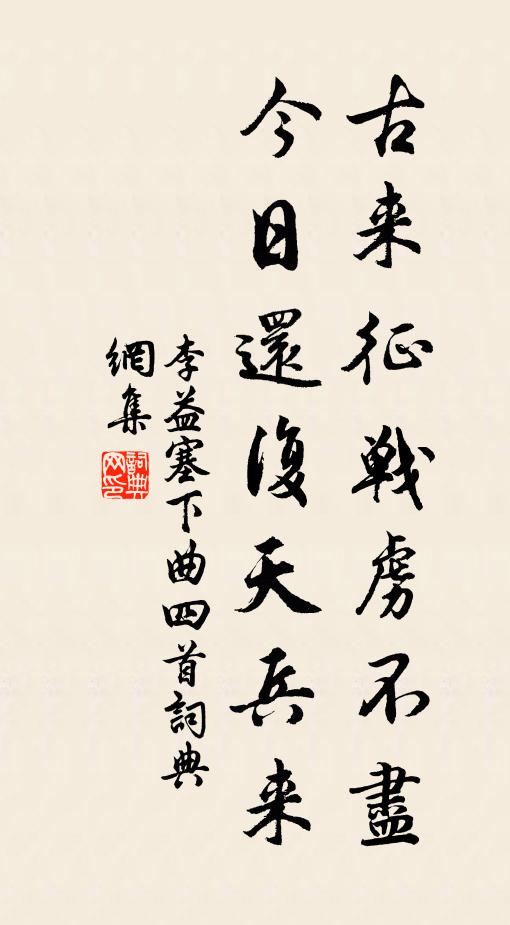 古来征戦虜不盡
今日還復天兵来
李益塞下曲四首詞典
網集
詞典
网印